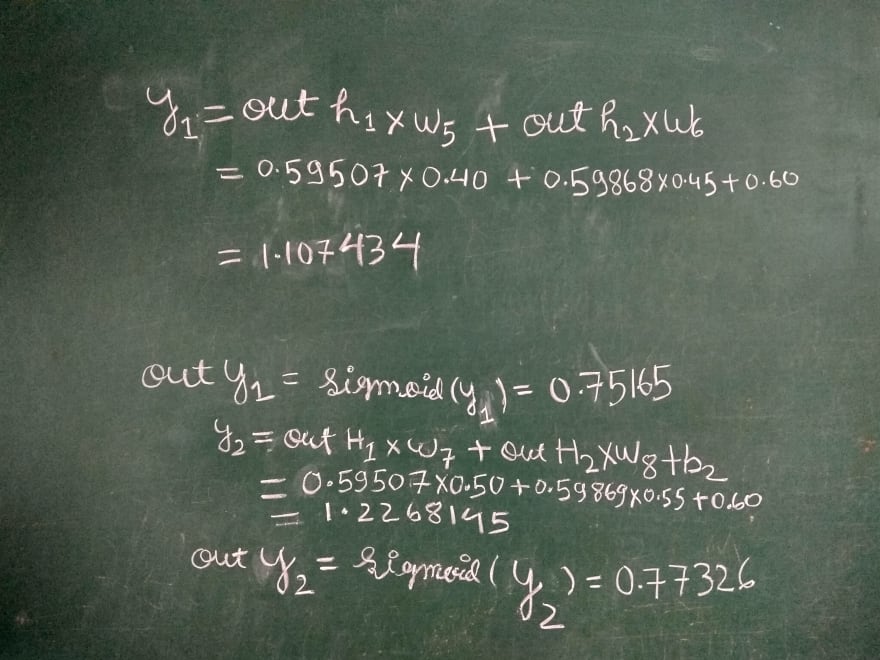 y₁ = out h₁ × w₅ + out h₂ × w₆
= 0.59507 × 0.40 + 0.59868 × 0.45 + 0.60
= 1.107434
out y₁ = sigmoid (y₁) = 0.75165
y₂ = out H₁ × w₇ + out H₂ × w₈ + b₂
= 0.59507 × 0.50 + 0.59869 × 0.55 + 0.60
= 1.2268145
out y₂ = sigmoid (y₂) = 0.77326